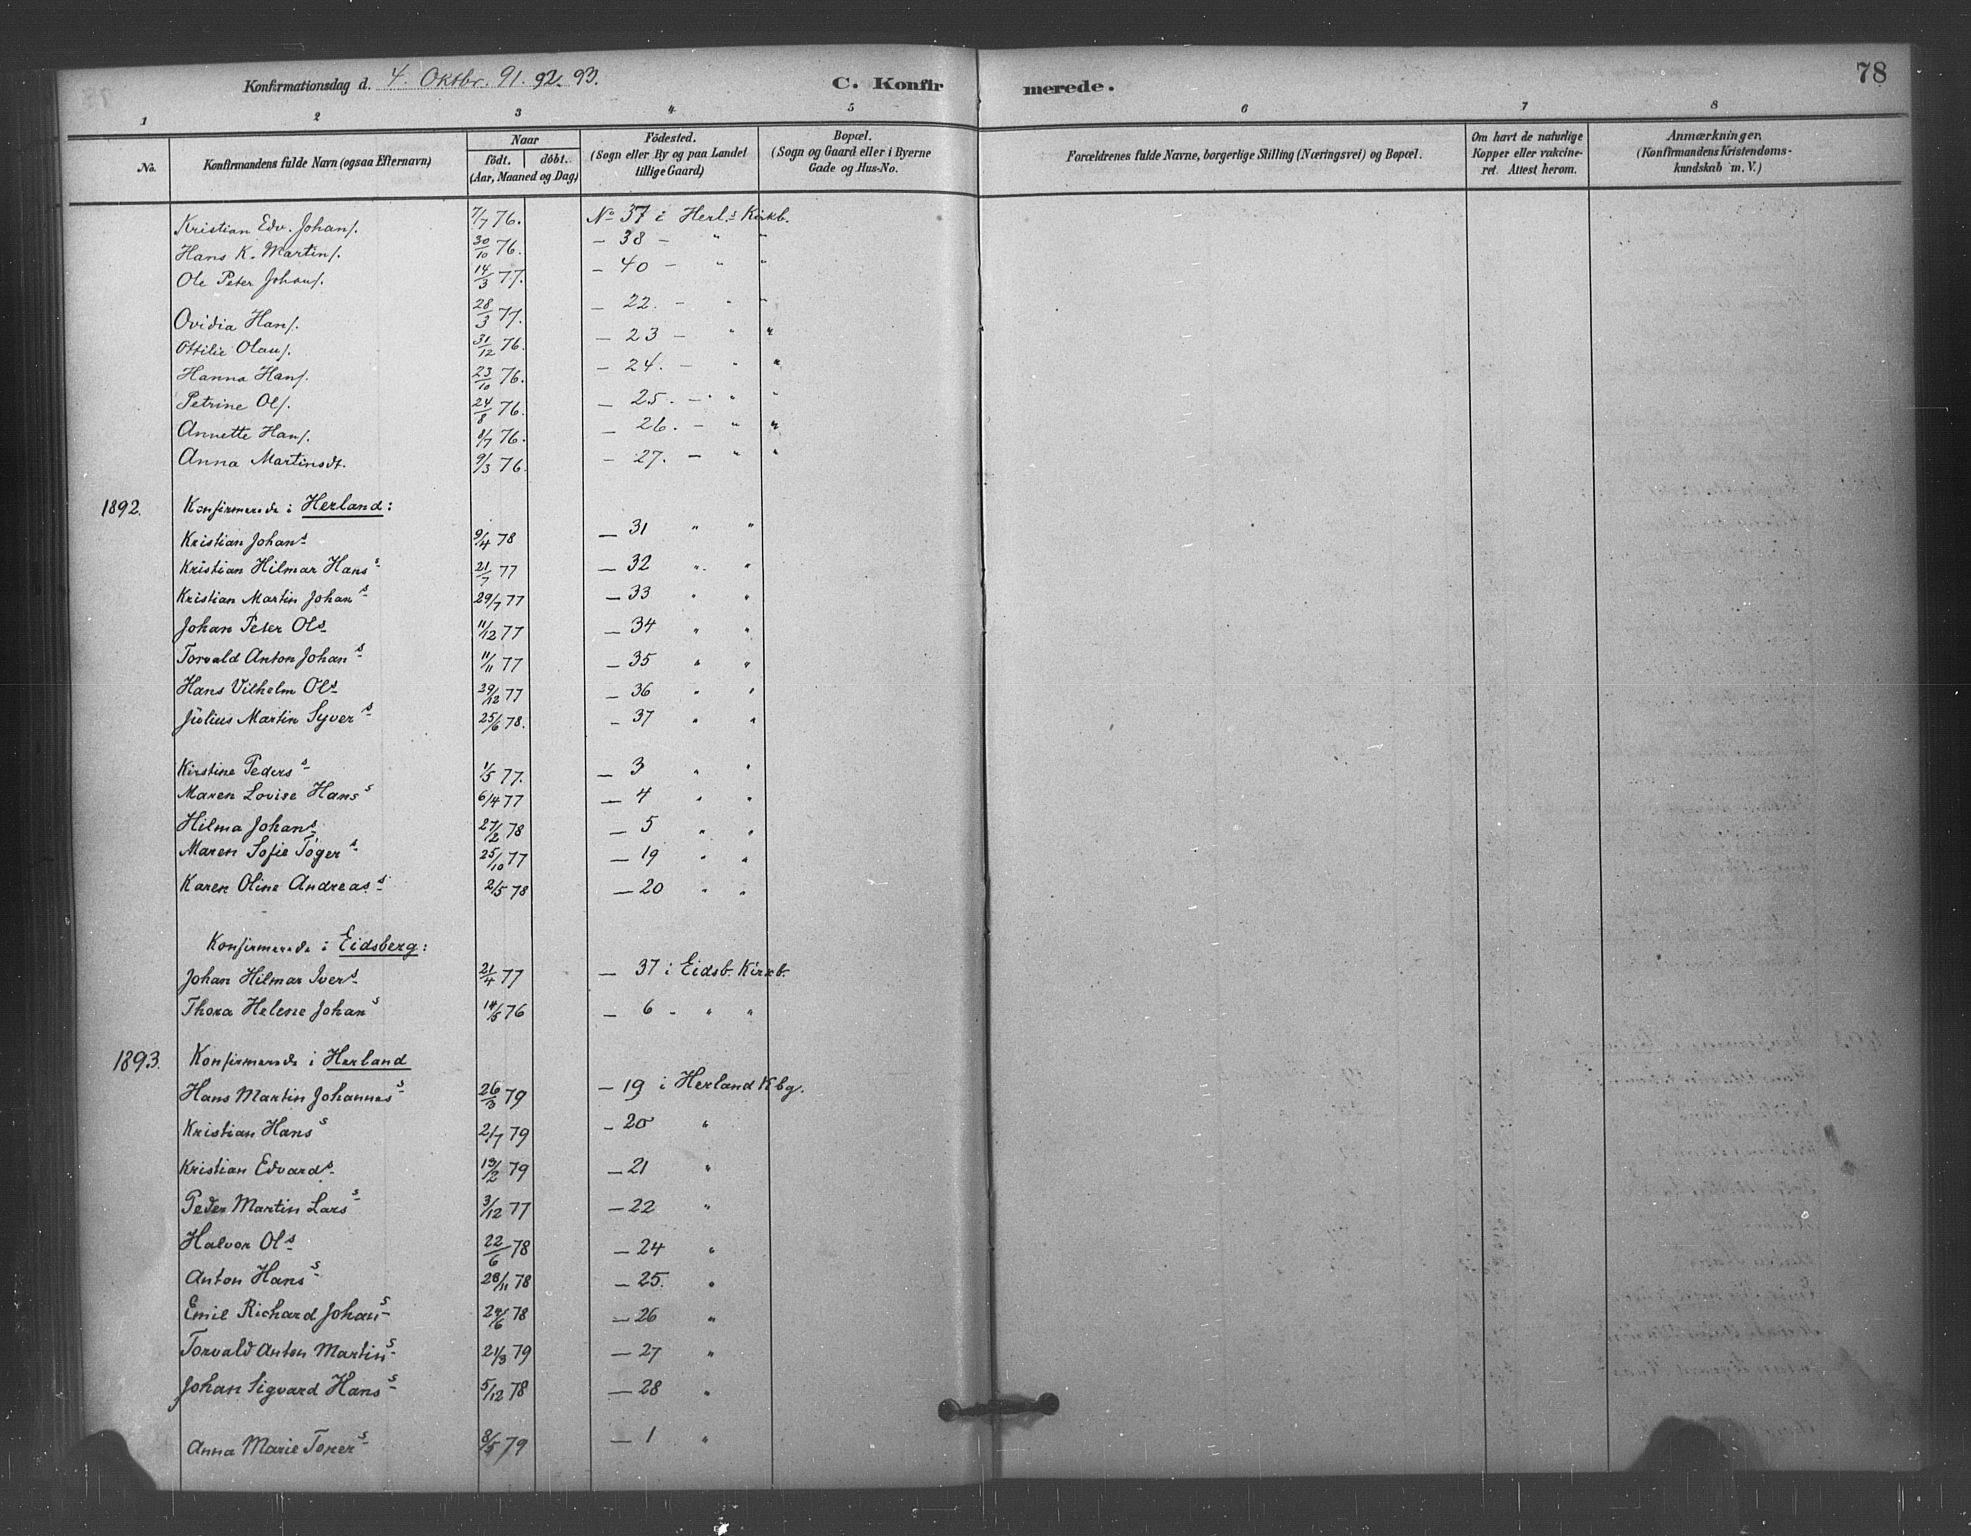 Konfirmationsdag d. 4. Oktbr. 91. 92. 93.
C. Konfirmerede.
78
1 2 3 4 5 6 7 8
No.
Konfirmandens fulde Navn (ogsaa Efternavn)
Naar
født. døbt.
(Aar, Maaned og Dag)
Fødested.
(Sogn eller By og paa Landet
tillige Gaard)
Bopæl.
(Sogn og Gaard eller i Byerne
Gade og Hus-No.
Forældrenes fulde Navne, borgerlige Stilling (Næringsvei) og Bopæl.
Om havt de naturlige
Kopper eller vakcine-
ret. Attest herom.
Anmærkninger.
(Konfirmandens Kristendoms-
kundskab m. V.)
Kristian Edv. Johans. 7/7 76. No 37 i Herl.s Kirkb.
Hans K. Martins. 30/10 76. — 38 — " "
Ole Peter Johans. 14/3 77. — 40 — " "
Ovidia Hans. 28/3 77. — 22. — " "
Ottilie Olaus. 31/12 76. — 23 — " "
Hanna Hans. 23/10 76. — 24. — " "
Petrine Ols. 24/8 76. — 25. — " "
Annette Hans. 8/7 76. — 26. — " "
Anna Martinsdt. 9/3 76. — 27. — " "
1892. Konfirmerede i Herland:
Kristian Johans 9/4 78 — 31 " "
Kristian Hilmar Hans s 21/7 77 — 32 " "
Kristian Martin Johan s 29/7 77 — 33 " "
Johan Peter Ols 11/12 77 — 34 " "
Torvald Anton Johan s 11/11 77 — 35 " "
Hans Vilhelm Ols 29/12 77 — 36 " "
Julius Martin Syver s 25/6 78. — 37 " "
Kirstine Peders s 1/5 77. — 3 " "
Maren Lovise Hans s 6/4 77 — 4 " "
Hilma Johans 27/2 78 — 5 " "
Maren Sofie Tøger s 25/10 77 — 19 " "
Karen Oline Andreas s 2/5 78 — 20 " "
Konfirmerede i Eidsberg:
Johan Hilmar Ivers 21/4 77 — 37 i Eidsb. Kirkb.
Thora Helene Johan s 14/5 76 — 6 - " "
1893. Konfirmerede i Herland
Hans Martin Johannes s 26/3 79 — 19 i Herland Kbg.
Kristian Hans s 2/7 79 — 20 "
Kristian Edvards 13/2 79 — 21 "
Peder Martin Lars s 3/12 77 — 22 "
Halvor Ols 22/6 78 — 24 "
Anton Hans s 28/11 78 — 25. "
Emil Richard Johan s 78 — 26 "
Torvald Anton Martin s 21/3 79 — 27 "
Johan Sigvard Hans s 5/12 78 — 28 "
Anna Marie Torer s 3/5 79 — 1 "